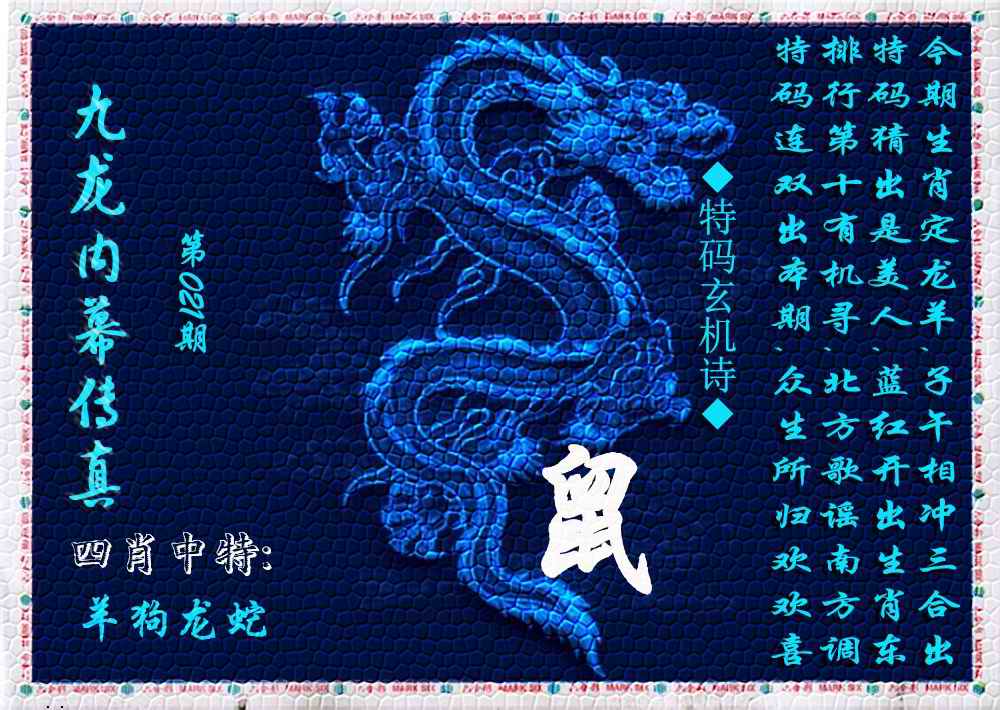 今期生肖定龙羊、子午相冲三合出
特码猜出是美人、蓝红开出生肖东
排行第十有机寻、北方歌谣南方调
特码连双出本期、众生所归欢欢喜
◆特码玄机诗◆
九龙内幕传真
第021期
鼠
四肖中特:
羊狗龙蛇